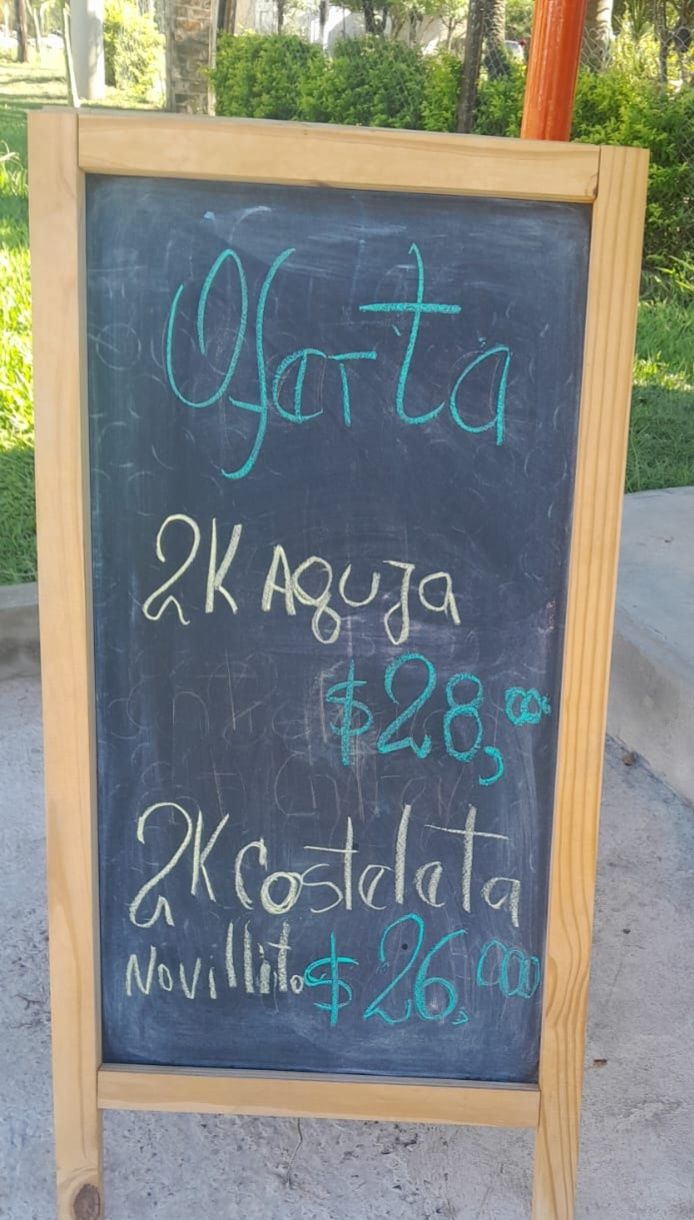 Oferta
2K Aguja
$28,000
2K Costeleta
Novillito $26,000